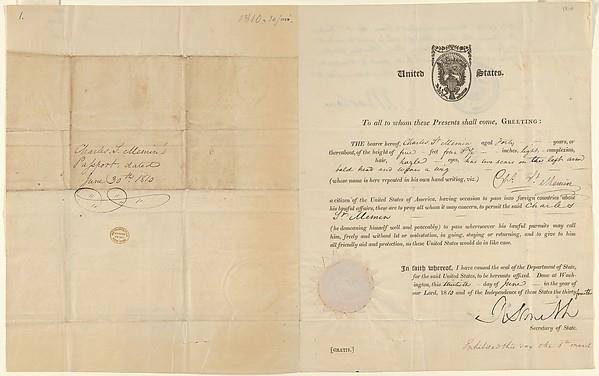 1.
1810
Charles St. Memin's
Pasport dated
June 30th 1810
United States.
To all to whom these Presents shall come, GREETING:
THE bearer hereof, Charles St Memin aged Forty years, or
thereabout, of the height of five feet four inches, light complexion,
hair, hazle eyes, has two scars on the left arm
bald head and wears a wig
(whose name is here repeated in his own hand writing, viz.) St. Memin
a citizen of the United States of America, having occasion to pass into foreign countries about
his lawful affairs, these are to pray all whom it may concern, to permit the said Charles
St Memin
(he demeaning himself well and peaceably) to pass wheresoever his lawful pursuits may call
him, freely and without let or molestation, in going, staying or returning, and to give to him
all friendly aid and protection, as these United States would do in like case.
In faith whereof, I have caused the seal of the Department of State,
for the said United States, to be hereunto affixed. Done at Wash-
ington, this thirtieth day of June in the year of
our Lord, 1810 and of the Independence of these States the thirty fourth
R Smith
Secretary of State.
[GRATIS.]